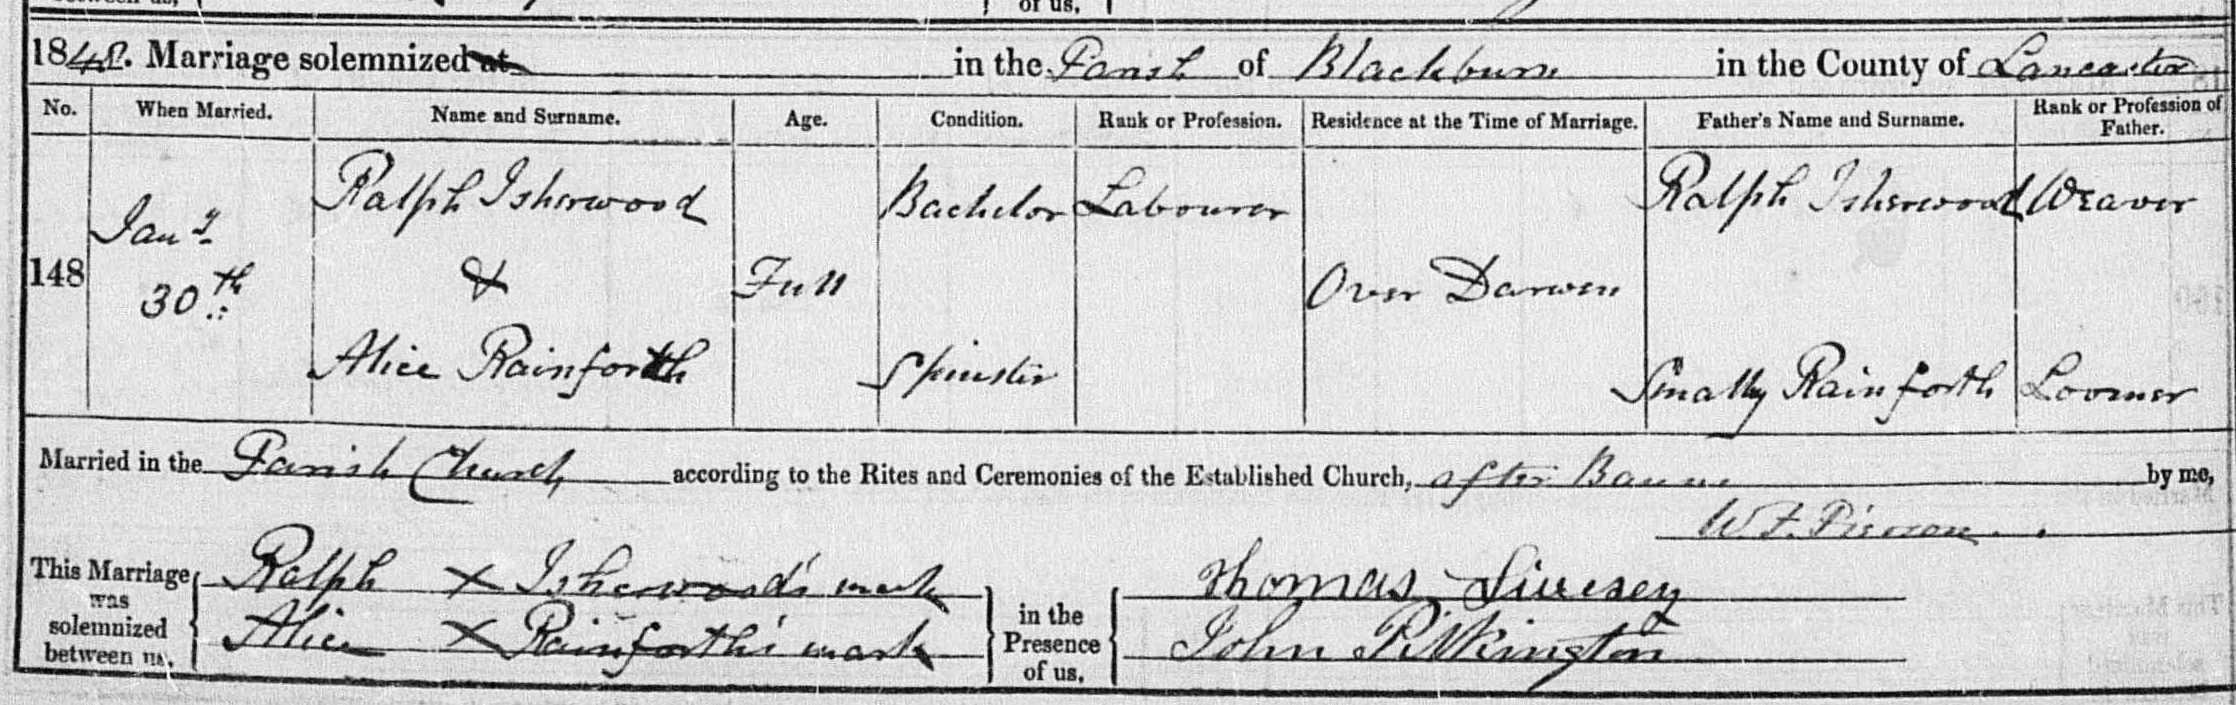 between us, of us,
1848. Marriage solemnized at in the Parish of Blackburn in the County of Lancaster
No. When Married. Name and Surname. Age. Condition. Rank or Profession. Residence at the Time of Marriage. Father's Name and Surname. Rank or Profession of Father.
148 Jany 30th Ralph Isherwood Full Bachelor Labourer Over Darwen Ralph Isherwood Weaver
&
Alice Rainforth Spinster Smally Rainforth Loomer
Married in the Parish Church according to the Rites and Ceremonies of the Established Church, after Banns by me,
W. F. Pierson
This Marriage was solemnized between us, Ralph X Isherwood's mark in the Presence of us, Thomas Livesey
Alice X Rainforth's mark John Pilkington